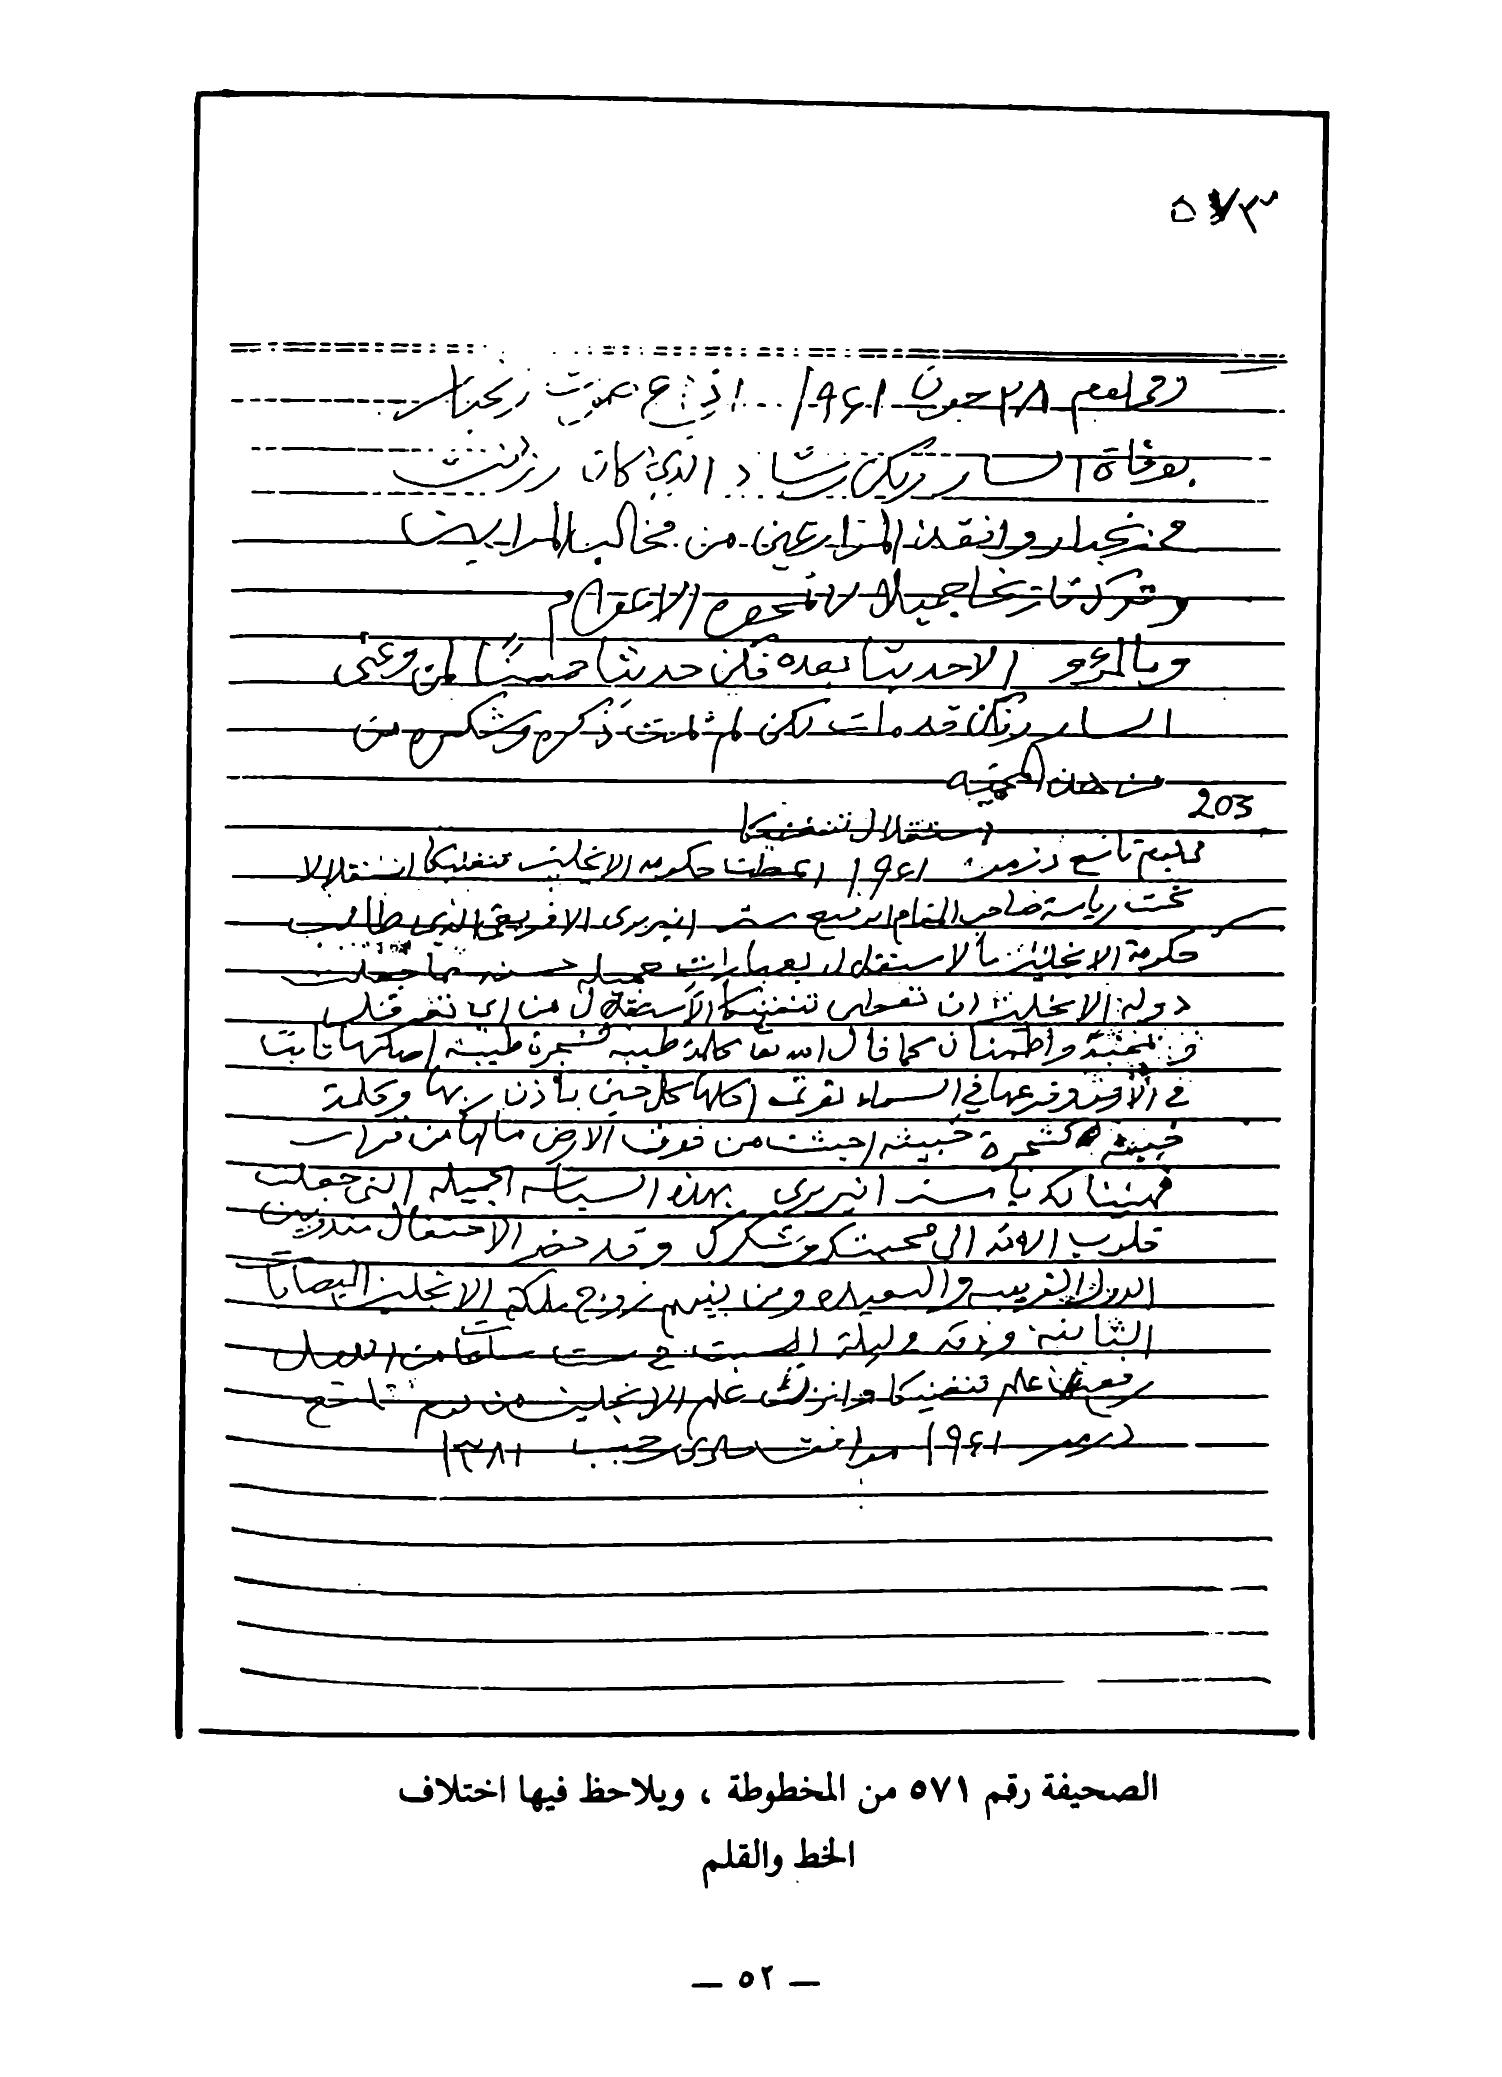 ٥٧٣
وفي يوم ٢٨ جون ١٩٦١ اذيع عموت زنجبار
بوفاة السار رنكن رشاد الذي كان رزدنت
في زنجبار وانقذ المزارعين من مخالب المرابين
وترك تاريخا جميلا لا تمحوه الاعوام
وما المرؤ الا حديثا بعده فكن حديثا حسنا لمن وعى
السار رنكن قد مات لكن لم تمت ذكره وشكره من
من هذه المحمية
203
استقلال تنغنيكا
في يوم تاسع دزمبر ١٩٦١ اعطت حكومة الانجليز تنغنيكا استقلالا
تحت رياسة صاحب المقام الرفيع مستر انيريري الافريقي الذي طالب
حكومة الانجليز بالاستقلال بعبارات جميلة حسنة مما جعلت
دولة الانجليز ان تعطي تنغنيكا الاستقلال من اي تغير قلب
وبمحبة واطمئنان كما قال الله تعا كلمة طيبه كشجرة طيبة اصلها ثابت
في الارض وفرعها في السماء تؤتي اكلها كل حين بأذن ربها وكلمة
خبيثه كشجرة خبيثه اجتثت من فوق الارض ما لها من قرار
فهنيئا لك يا مستر انيريري بهذه السياسة الجميلة التي جعلت
قلوب الامه الى محبتك وشكرك وقد حضر الاحتفال مندوبين
الدول القريبه والبعيده ومن بينهم زوج ملكة الانجليز اليصابات
الثانية وزفة وليلة السبت في ست ساعات من الليل
رفعت علم تنغنيكا وانزلت علم الانجليز من يوم تاسع
دزمبر ١٩٦١ موافق حادي رجب ١٣٨١
الصحيفة رقم ٥٧١ من المخطوطة ، ويلاحظ فيها اختلاف
الخط والقلم
— ٥٢ —